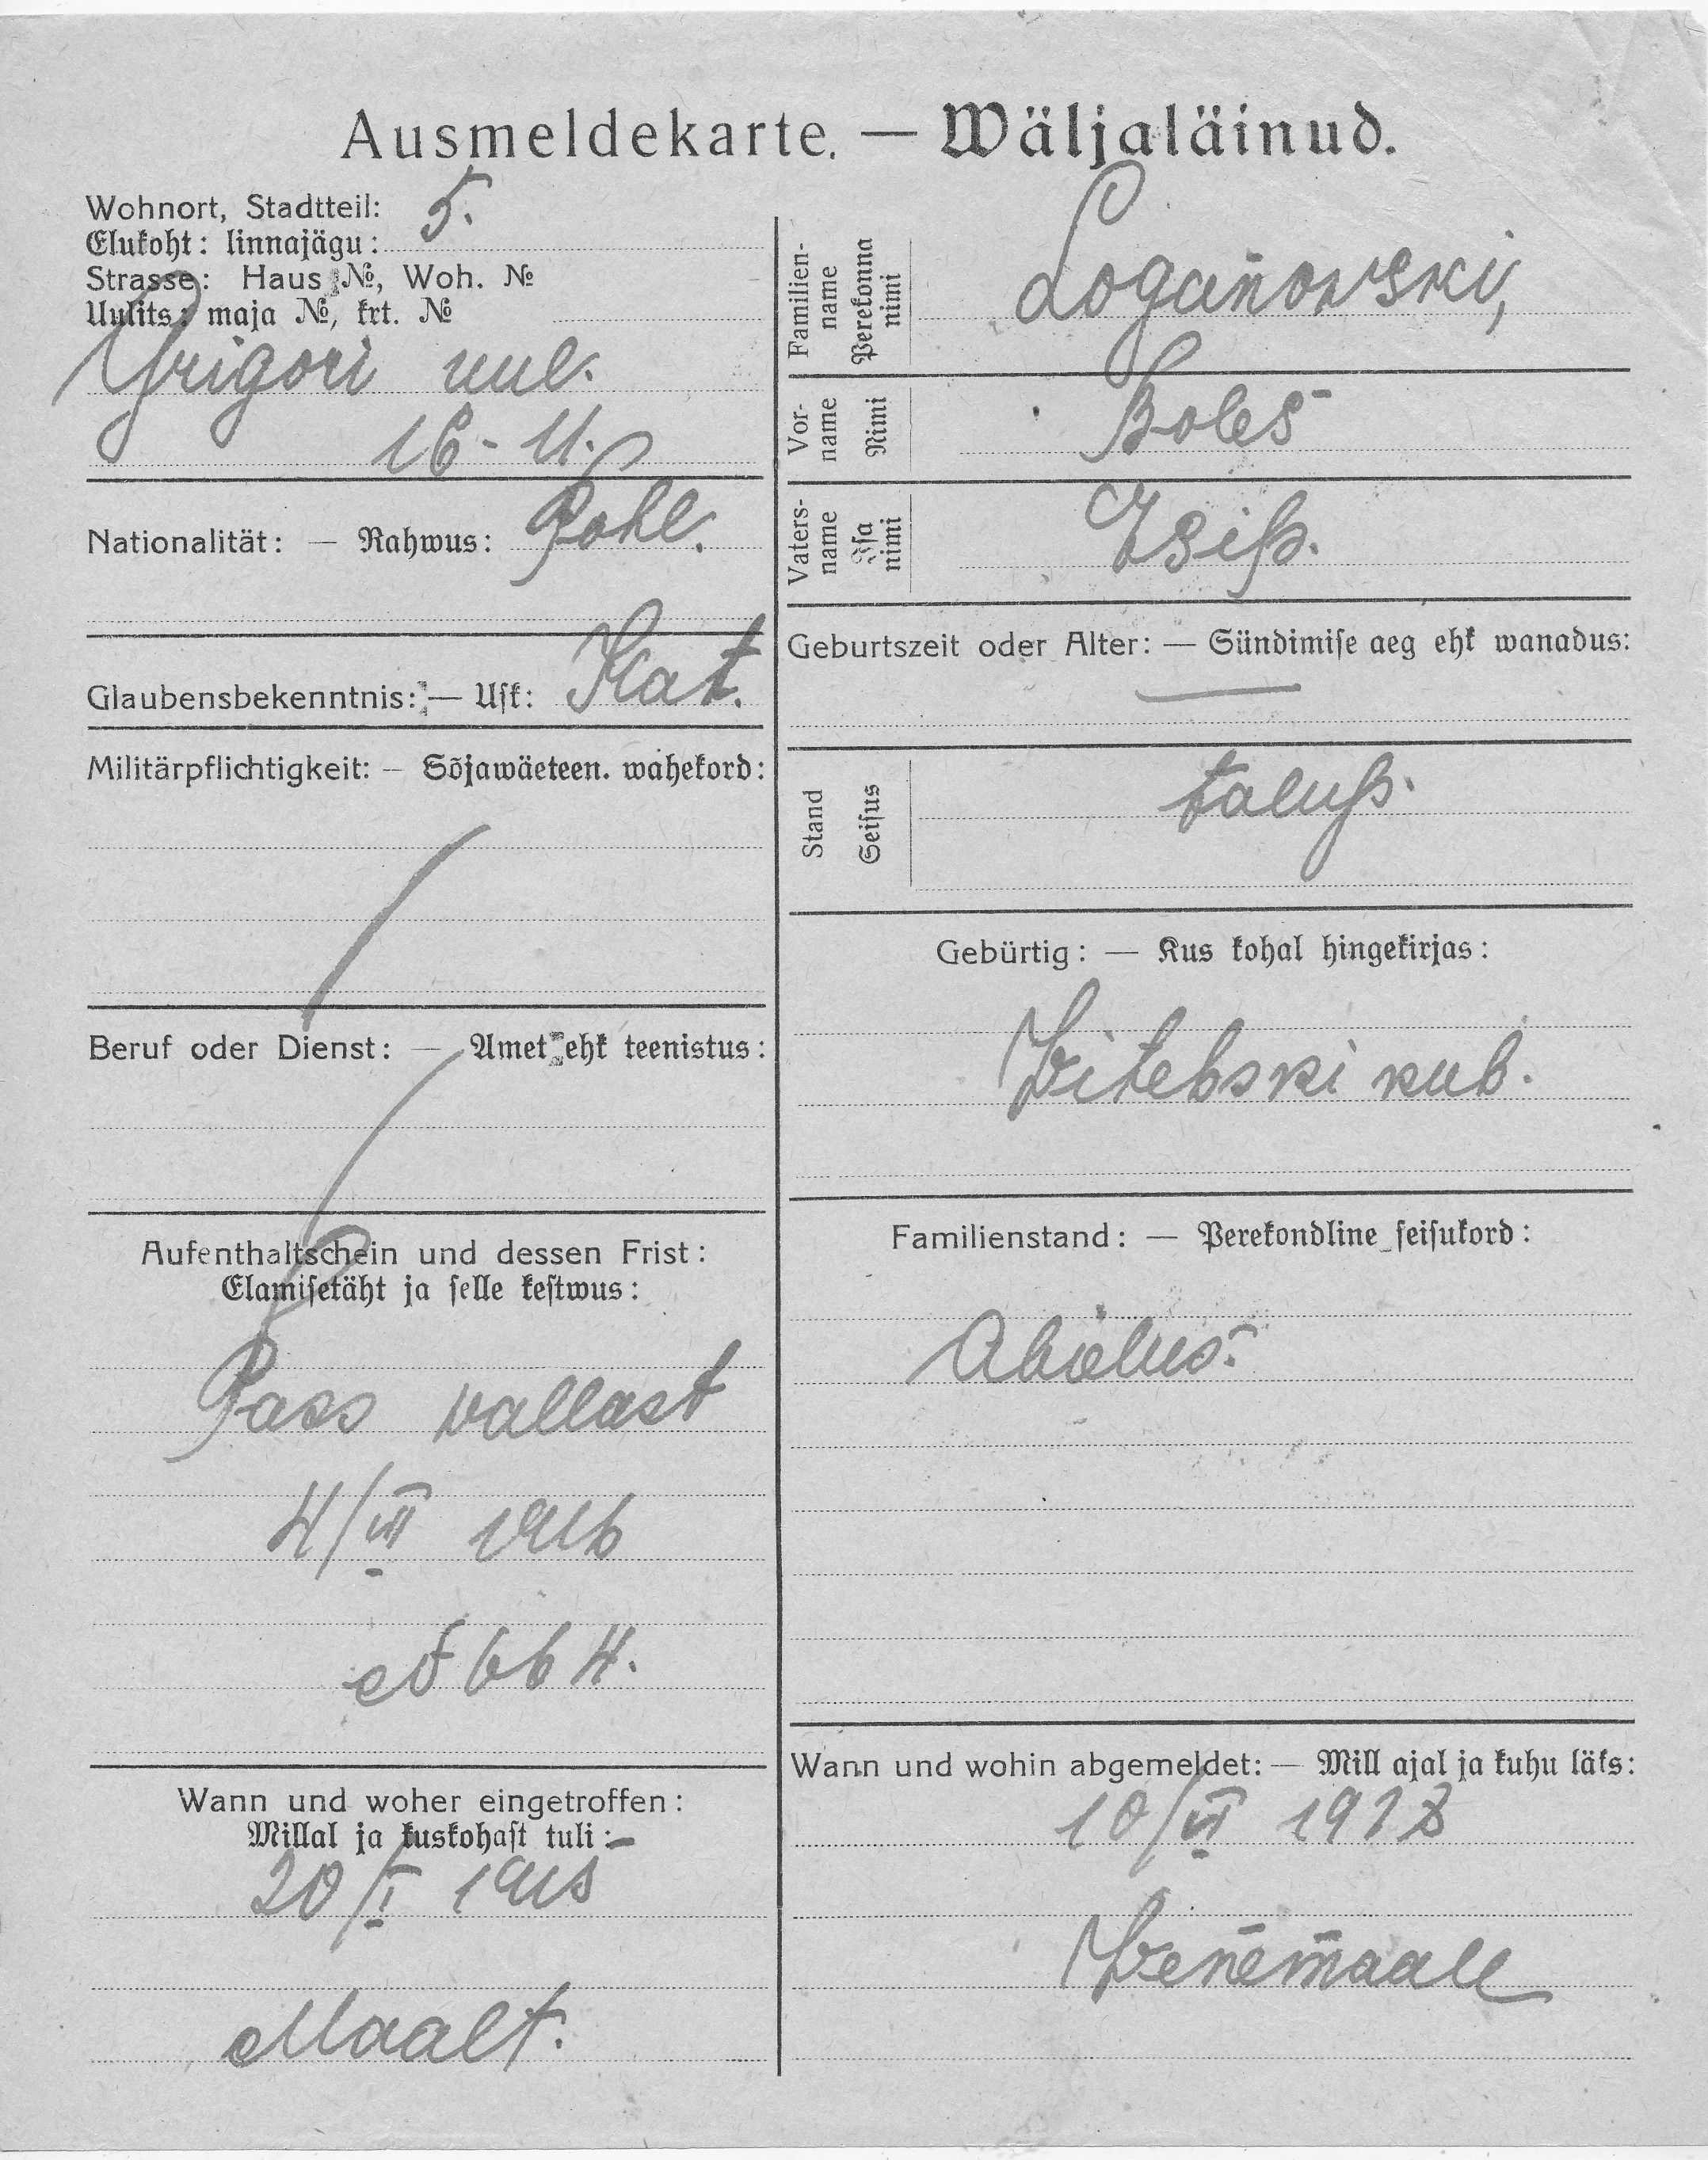 Ausmeldekarte. — Wäljaläinud.
Wohnort, Stadtteil:
Elukoht: linnajägu: 5.
Strasse: Haus №, Woh. №
Uulits: maja №, krt. №
Grigori uul.
16-11.
Nationalität: — Rahwus: Pohl.
Glaubensbekenntnis: — Usk: Kat.
Militärpflichtigkeit: — Sõjawäeteen. wahekord:
Beruf oder Dienst: — Amet ehk teenistus:
Aufenthaltschein und dessen Frist:
Elamisetäht ja selle kestwus:
Pass vallast
4/VII 1916
№ 664.
Wann und woher eingetroffen:
Millal ja kuskohast tuli:
20/I 1915
Maalt.
Familien-name Perekonna nimi
Loganowski,
Vor-name Nimi
Boles
Vaters-name Isa nimi
Geburtszeit oder Alter: — Sündimise aeg ehk wanadus:
—
Stand Seisus
taluß.
Gebürtig: — Kus kohal hingekirjas:
Witebski kub.
Familienstand: — Perekondline seisukord:
Abielus.
Wann und wohin abgemeldet: — Mill ajal ja kuhu läks:
10/VI 1918
Wenemaale